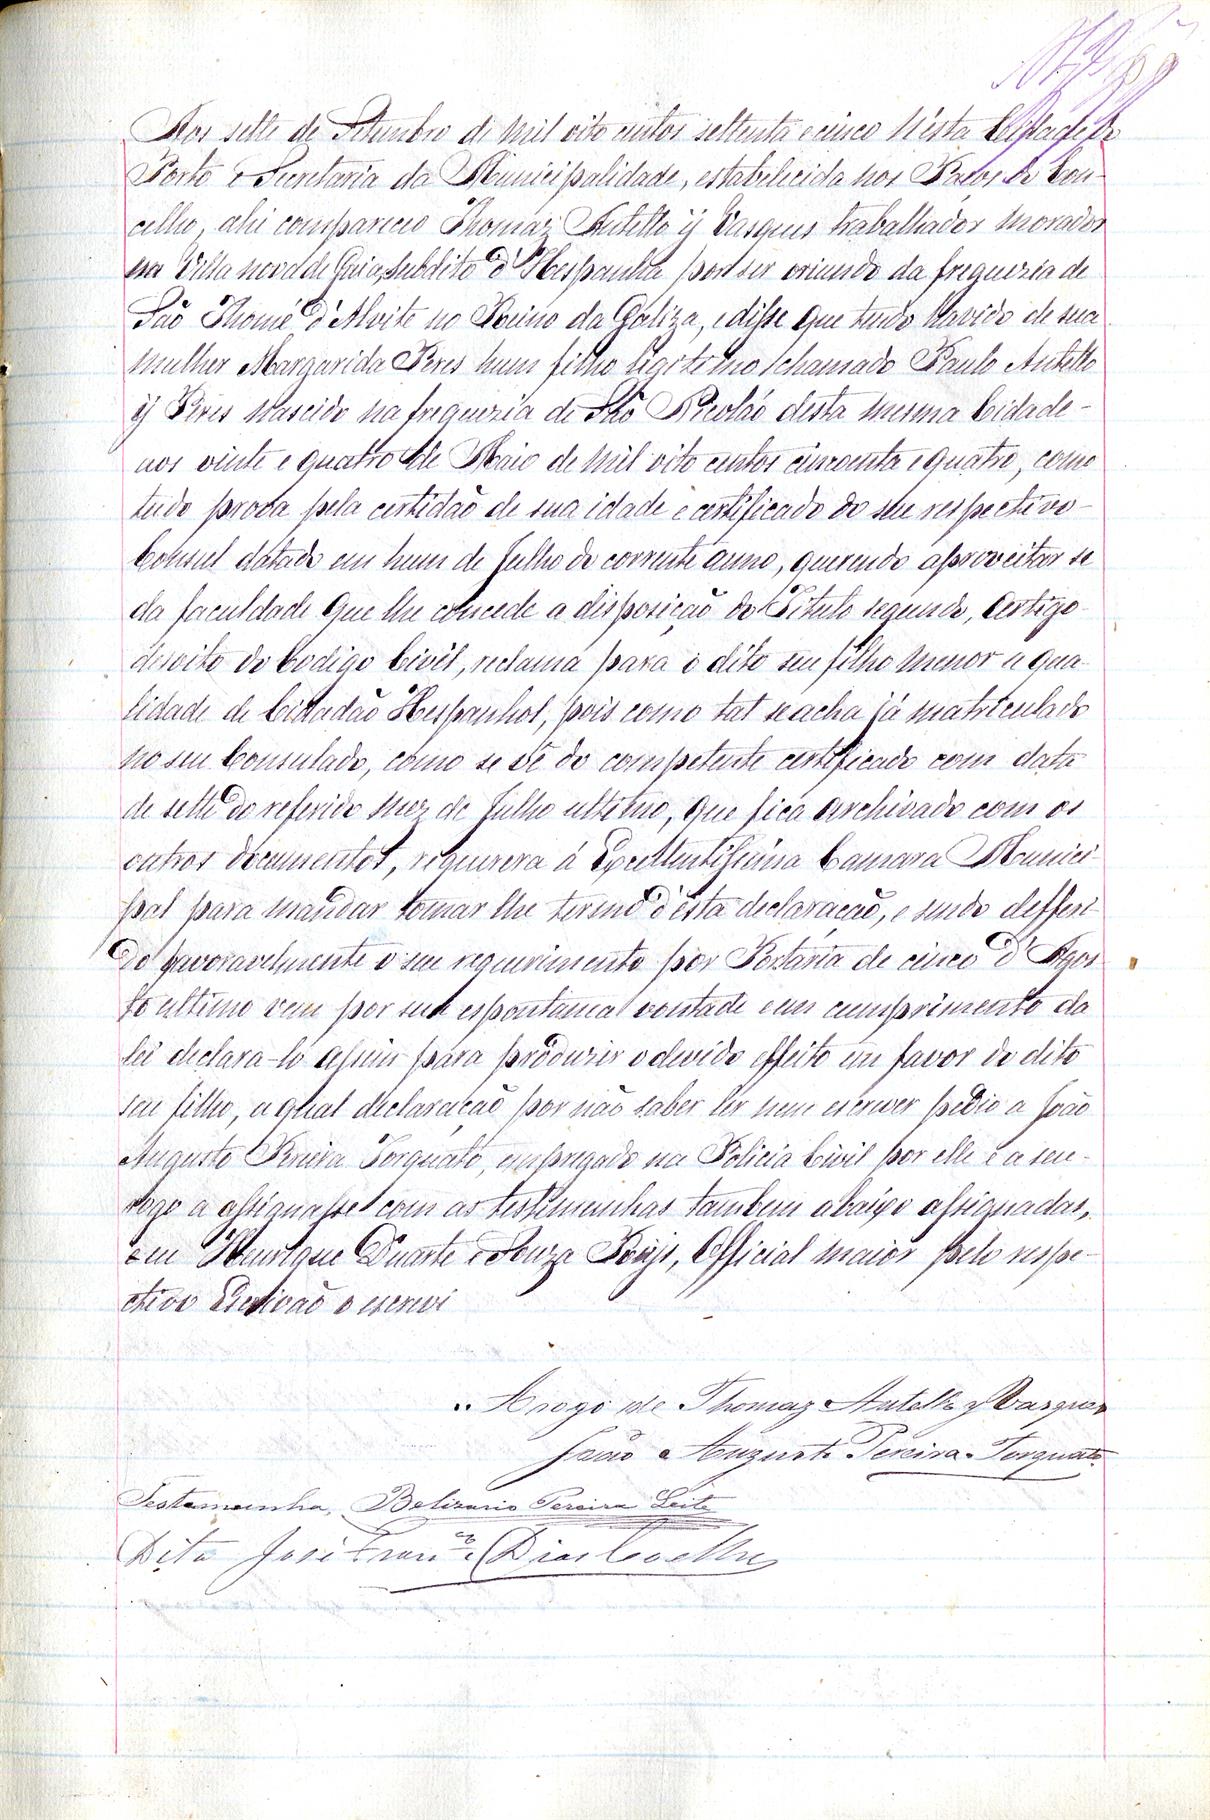 Aos sette de Setembro de mil oito centos settenta e cinco n'ésta Cidade do
Porto e Secretaria da Municipalidade, estabelecida nos Paços do Con-
celho, ahi compareceo Thomaz Antello ÿ Vasques trabalhador morador
na Villa nova de Gaia, subdito d'Hespanha por ser oriundo da freguezia de
São Thomé d'Alvite no Reino da Galiza, e disse que tendo havido de sua
mulher Margarida Peres hum filho legitimo chamado Paulo Antello
ÿ Pires nascido na freguezia de São Nicoláo desta mesma Cidade -
aos vinte e quatro de Maio de mil oito centos cincoenta e quatro, como
tudo prova pela certidão de sua idade e certificado do seu respectivo -
Consul datado em hum de Julho do corrente anno, querendo aproveitar se
da faculdade que lhe concede a disposição do Titulo segundo, Artigo
desoito do Codigo Civil, reclama para o dito seu filho menor a qua-
lidade de Cidadão Hespanhol, pois como tal se acha já matriculado
no seu Consulado, como se vê do competente certificado com data
de sette do referido mez de Julho ultimo, que fica archivado com os
outros documentos, requerera á Excellentissima Camara Munici-
pal para mandar tomar lhe termo d'ésta declaração, e sendo defferi-
do favoravelmente o seu requerimento por Portaria de cinco d'Agos-
to ultimo vem por sua espontanea vontade e em cumprimento da
lei declara-lo assim para produzir o devido effeito em favor do dito
seu filho, a qual declaração por não saber ler nem escrever pedio a João
Augusto Pereira Torquato, empregado na Policia Civil por elle e a seu -
rogo a assignasse com as testemunhas tambem abaixo assignadas,
e eu Henrique Duarte e Souza Reis, Official maior pelo respe-
ctivo Escrivão o escrevi
A rogo de Thomaz Antello y Vasques
João Augusto Pereira Torquato
Testemunha, Belizario Pereira Leite
Dita José Fran.co Dias Coelho